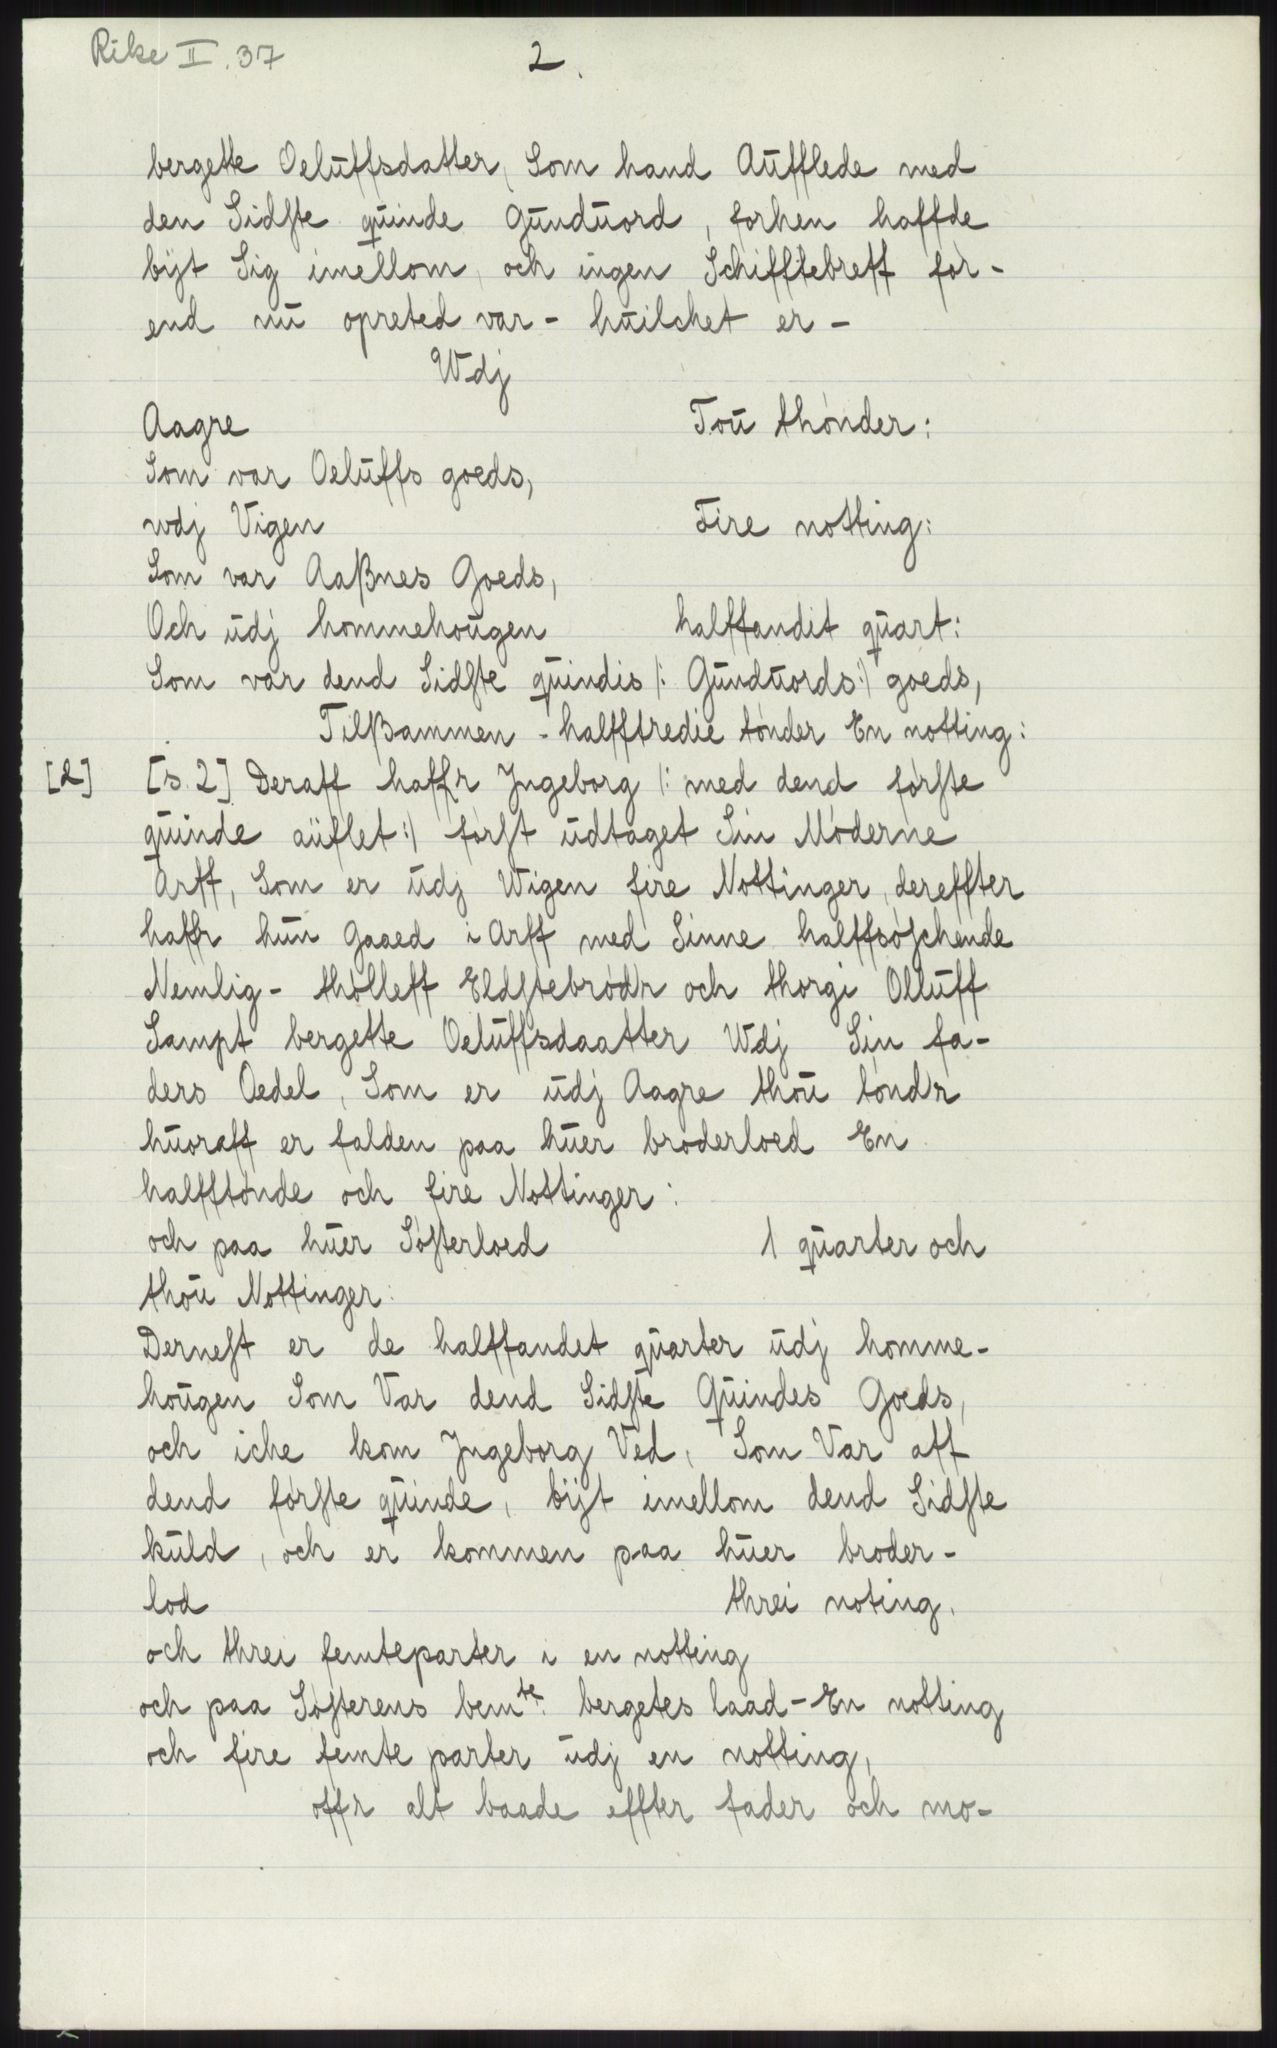 Rike II. 37
2.
bergette Oelūffsdatter, Som hand Aūfflede med
den Sidste qūinde Gūndūord, forhen haffde
bijt Sig imellom, och ingen Schifftebreff for-
end nū opreted var - hūilchet er -
Wdj
Aagre Toū thónder:
Som var Oelūffs goeds,
wdj Vigen Fire notting:
Som var Aaßnes Goeds,
Och ūdj hommehoūgen halffandit qūart:
Som var dend Sidste qūindis /: Gūndūords :/ goeds,
Tilßammen - halfftredie tónder En notting:
[2] [s. 2] Deraff haffr Jngeborg /: med dend fórste
qūinde aūflet :/ fórst ūdtaget Sin Móderne
Arff, Som er ūdj Wigen fire Nottinger, dereffter
haffr hūn gaaed i Arff med Sinne halffsóschende
Nemlig - thólleff Eldstebródr och thorgi Ollūff
Sampt bergette Oelūffsdaatter Wdj Sin fa-
ders Oedel, Som er ūdj Aagre thoū tóndr
hūoraff er falden paa hūer broderloed En
halfftónde och fire Nottinger:
och paa hūer Sósterloed 1 qūarter och
thoū Nottinger:
Dernest er de halffandet qūarter ūdj homme-
hoūgen Som Var dend Sidste Qūindes Goeds,
och iche kom Jngeborg Ved, Som Var aff
dend fórste qūinde, bijt imellom dend Sidste
kūld, och er kommen paa hūer broder-
lod threi noting,
och threi femteparter i en notting
och paa Sósterens bemte. bergetes laad - En notting
och fire femte parter ūdj en notting,
offr alt baade effter fader och mo-